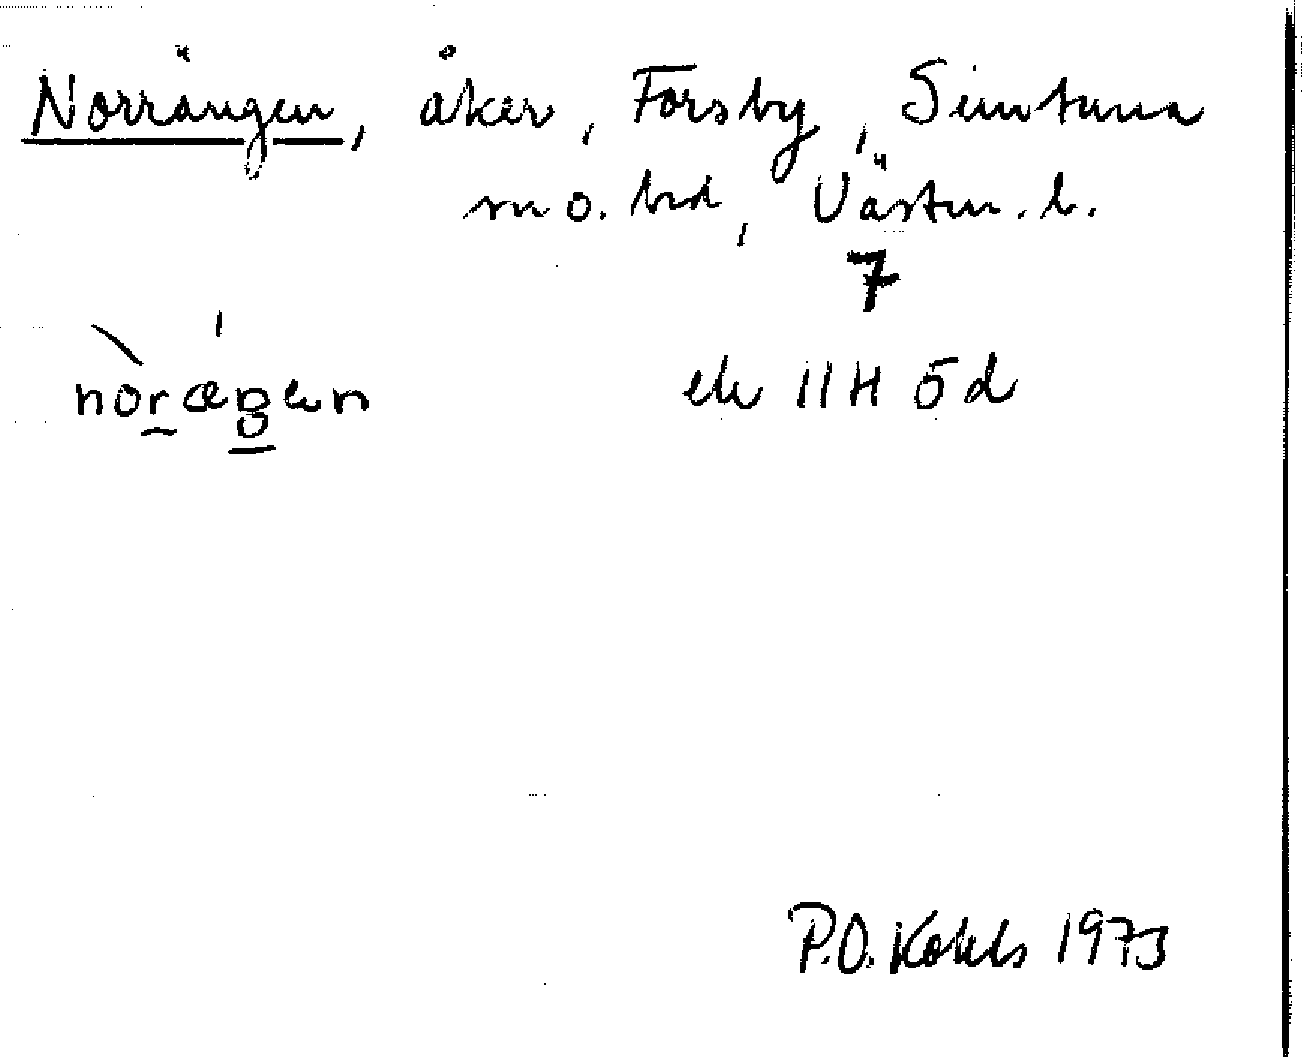 Norrängen, åker, Forsby, Simtuna
sn o. hd, Västm. l.
7
ek 11H 5d
P.O. 1973